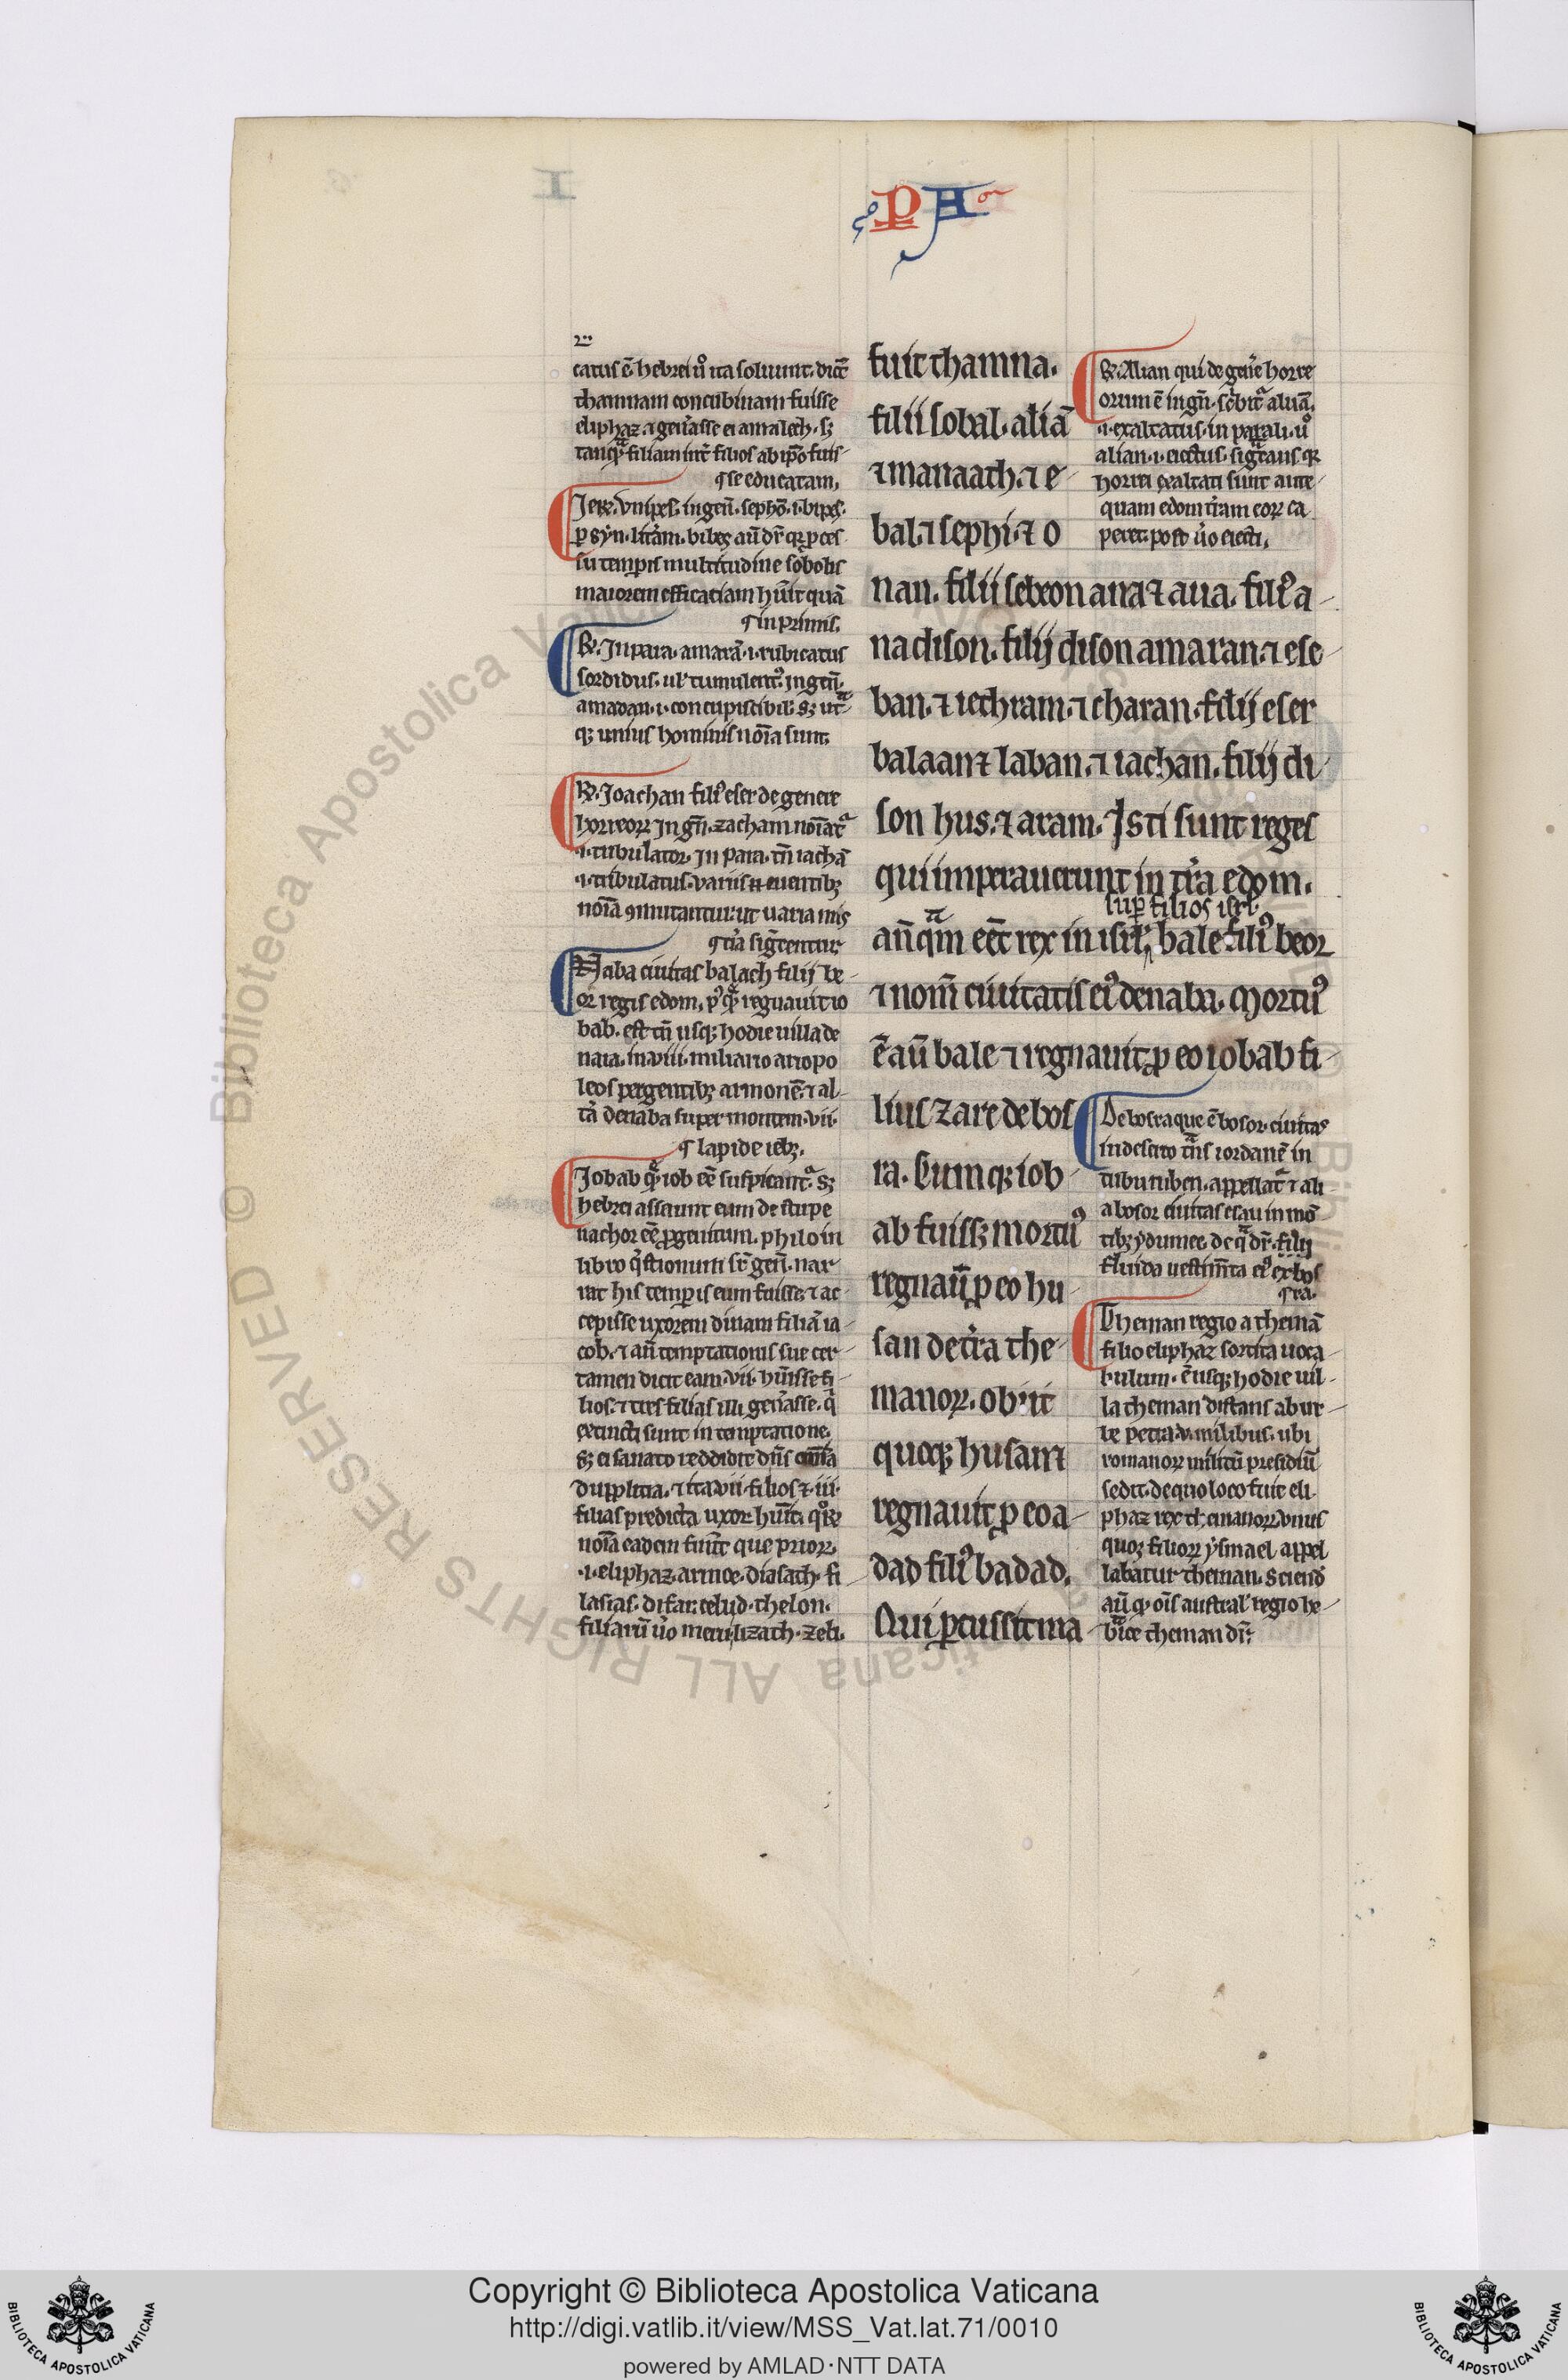 PAʳ
catus ē. hebrei u̾o ita soluunt. dicūt
thamnam concubinam fuisse
eliphaz ⁊ genuasse ei amalech. sꝫ
tanqᷓ filiam int̄ filios ab ip̄o fuis-
¶ se educatam.
per syn. litam. bibes aūt dr̄ qꝛ p̄ces-
su temporis multitudine sobolis
maiorem efficatiam hūit quā
¶ in primis.
R̷. In para. amarā .i. rubicatus
sordidus. ul̾ tumulent̾. in gen̄.
amadan .i. concupiscibil̾. sꝫ utᷓ-
qꝫ unius hominis nōia sunt.
R̷. Joachan fili̾ eser de genere
horreoꝝ In gn̄. zacham nōiat̄
.i. tribulator. in para. tn̄ iachā
.i. tribulatus. uariis .n. euentibꝫ
nōia ꝯmutantur. ut uaria mis
¶ t̄ia sigͣentur
Naba ciuitas balach filij be-
or regis edom. p̾ qᷓ regnauit io
bab. est tn̄ usqꝫ hodie uilla de
naia. in .viii. miliario ariopo
leos pergentibꝫ armonē. ⁊ al-
t̄a denaba super montem. vii.
¶ lapide iebꝫ.
Jobab qͥ iob eē suspicant̄. sꝫ
hebrei asserunt eum de stirpe
nachor eē ꝓgenitum. philo in
libro qͥstionum sr̄ gen̄. nar-
rat his temporis eum fuisse. ⁊ ac-
cepisse uxorem dinam filiā ia-
cob. ⁊ an̄ temptationis sue cer-
tamen dicit eam .vii. hūisse fi-
lios. ⁊ tres filias illi genuasse. qͥ
extincti sunt in temptatione.
sꝫ ei sanato reddidit dn̄s omnia
dupplicia. ⁊ ita .vii. filios ⁊ .iii.
filias predicta uxor hūit. qͦꝝ
nōia eadem fuer̄t que prioꝝ.
.i. eliphaz. armoe. diasach. fi-
lasias. difar. celud. thelon.
filiarū u̾o meru. lizach. zeli.
fuit thamna.
filii sobal. aliā
⁊ manaath. ⁊ e-
bal. ⁊ sephi. ⁊ o
nan. filii sebeon aia ⁊ aua. fili̾ a-
na dison. filij dison amaran. ⁊ ese-
ban. ⁊ iethram. ⁊ charan. filij eser
balaan ⁊ laban. ⁊ iachan. filij di-
son hus. ⁊ aram. Isti sunt reges
qui imperauerunt in t̄ra edom.
sup̄ filios isrl̄.
an̄qᷓm eēt rex in isrl̄. bale fili̾ beor
⁊ nom̄ ciuitatis ei̾ denaba. Mortu̾
ē aūt bale ⁊ regnauit ꝓ eo iobab fi-
lius zare de bos
ra. Cumqꝫ iob-
ab fuissꝫ mortu̾
regnauīt ꝓ eo hu-
san de t̄ra the-
manoꝝ. obiit
quoqꝫ husam ⁊
regnauit ꝓ eo a-
dad fili̾ badad.
Qui ꝑcussit ma-
R̷. Alian qui de geñe horre
orum ē in gn̄. scribit̄ aluā.
.i. exaltatus. in parali. u̾o
alian .i. eiectus. sigͣans qꝛ
horrei exaltati sunt ante-
quam edom t̄ram eoꝝ ca-
peret. post u̾o eiecti.
De bosra que ē bosor. ciuitas
in deserto tͣns iordanē in
tribu ruben. appellat̄ ⁊ ali-
a bosor ciuitas esau in mō-
tibꝫ ydumee. de qᷓ dr̄. filii
fluida uestim̄ta ei̾ ex bos
¶ ra.
Theman regio a themā
filio eliphaz sortita uoca-
bulum. ē usqꝫ hodie uil-
la theman distans ab ur-
be petra .v. milibus. ubi
romanoꝝ militū presidiū
sedit. de quo loco fuit eli-
phaz rex themanoꝝ. vnus
quoqꝫ filioꝝ ysmael appel
labatur theman. Sciend̄
aūt qꝫ oīs austral̾ regio he-
braice theman dr̄.
© Biblioteca Apostolica Vaticana ALL RIGHTS RESERVED
Copyright © Biblioteca Apostolica Vaticana
http://digi.vatlib.it/view/MSS_Vat.lat.71/0010
powered by AMLAD·NTT DATA
BIBLIOTECA APOSTOLICA VATICANA
BIBLIOTECA APOSTOLICA VATICANA